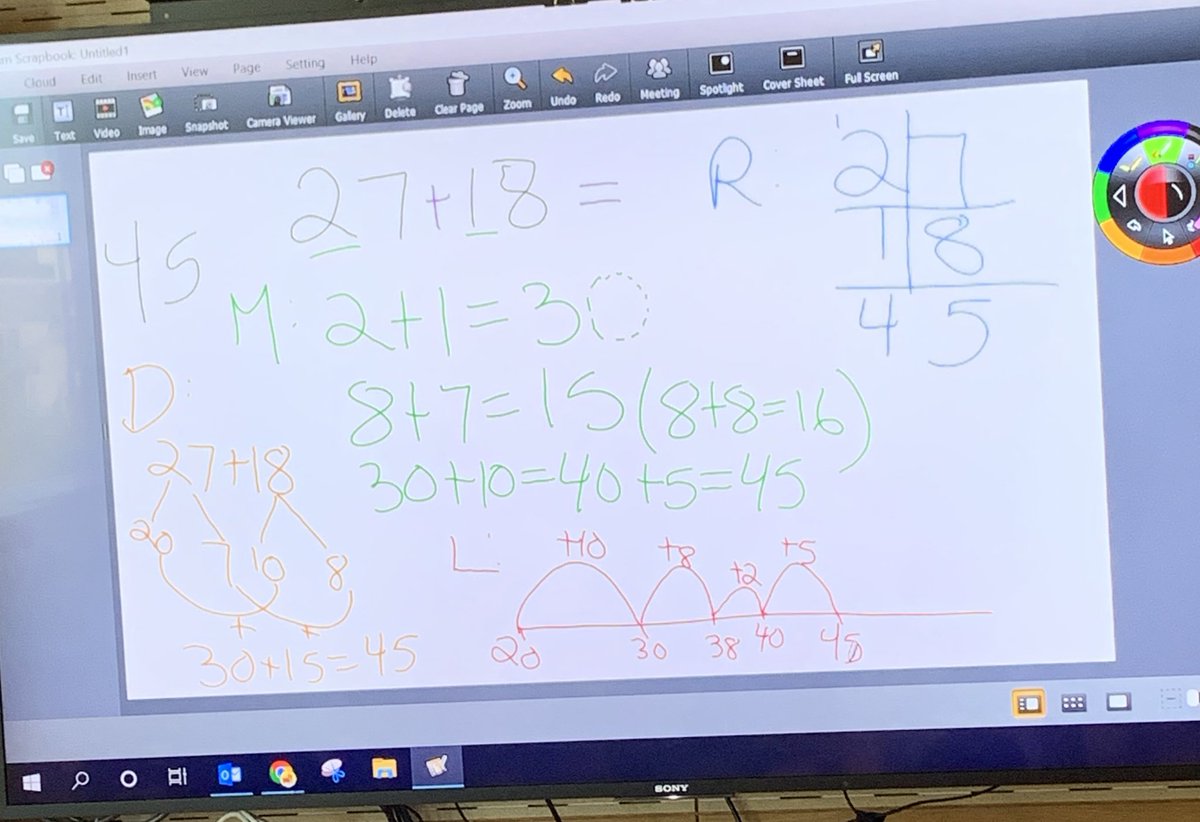 m Scrapbook: Untitled1
Cloud Edit Insert View Page Setting Help
Save Text Video Image Snapshot Camera Viewer Gallery Delete Clear Page Zoom Undo Redo Meeting Spotlight Cover Sheet Full Screen
27+18=
45
R: 1
2 7
1 8
4 5
M: 2+1=30
8+7=15(8+8=16)
30+10=40+5=45
D:
27+18
20 7 10 8
+ +
30+15=45
L:
+10 +8 +2 +5
20 30 38 40 45
SONY